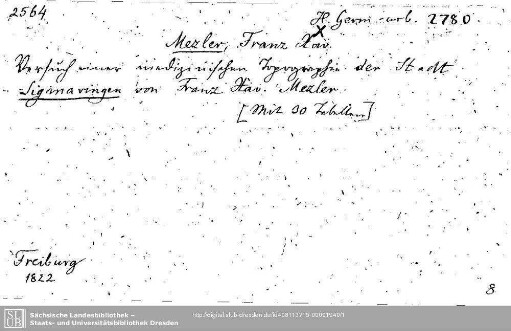 2564
H. Germ. urb. 278 0
Mezler, Franz Xav.
Versuch einer medizinischen Topographie der Stadt
Sigmaringen von Franz Xav. Mezler
[Mit 30 Tabellen]
Freiburg
1822
8
Sächsische Landesbibliothek –
Staats- und Universitätsbibliothek Dresden